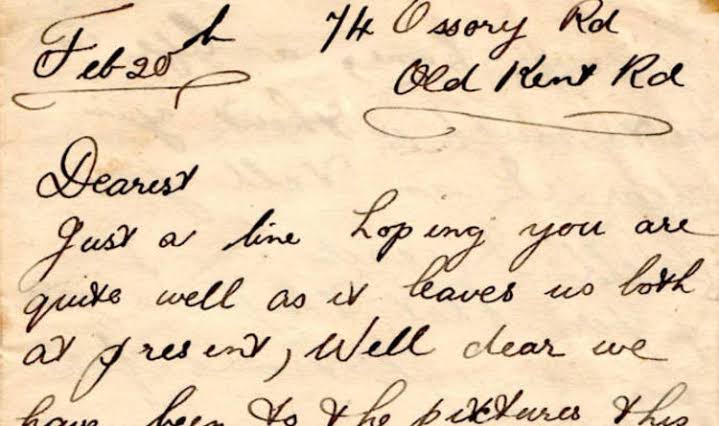 Feb 20th 74 Ossory Rd
Old Kent Rd
Dearest
Just a line hoping you are
quite well as it leaves us both
at present, Well dear we
have been to the pictures this